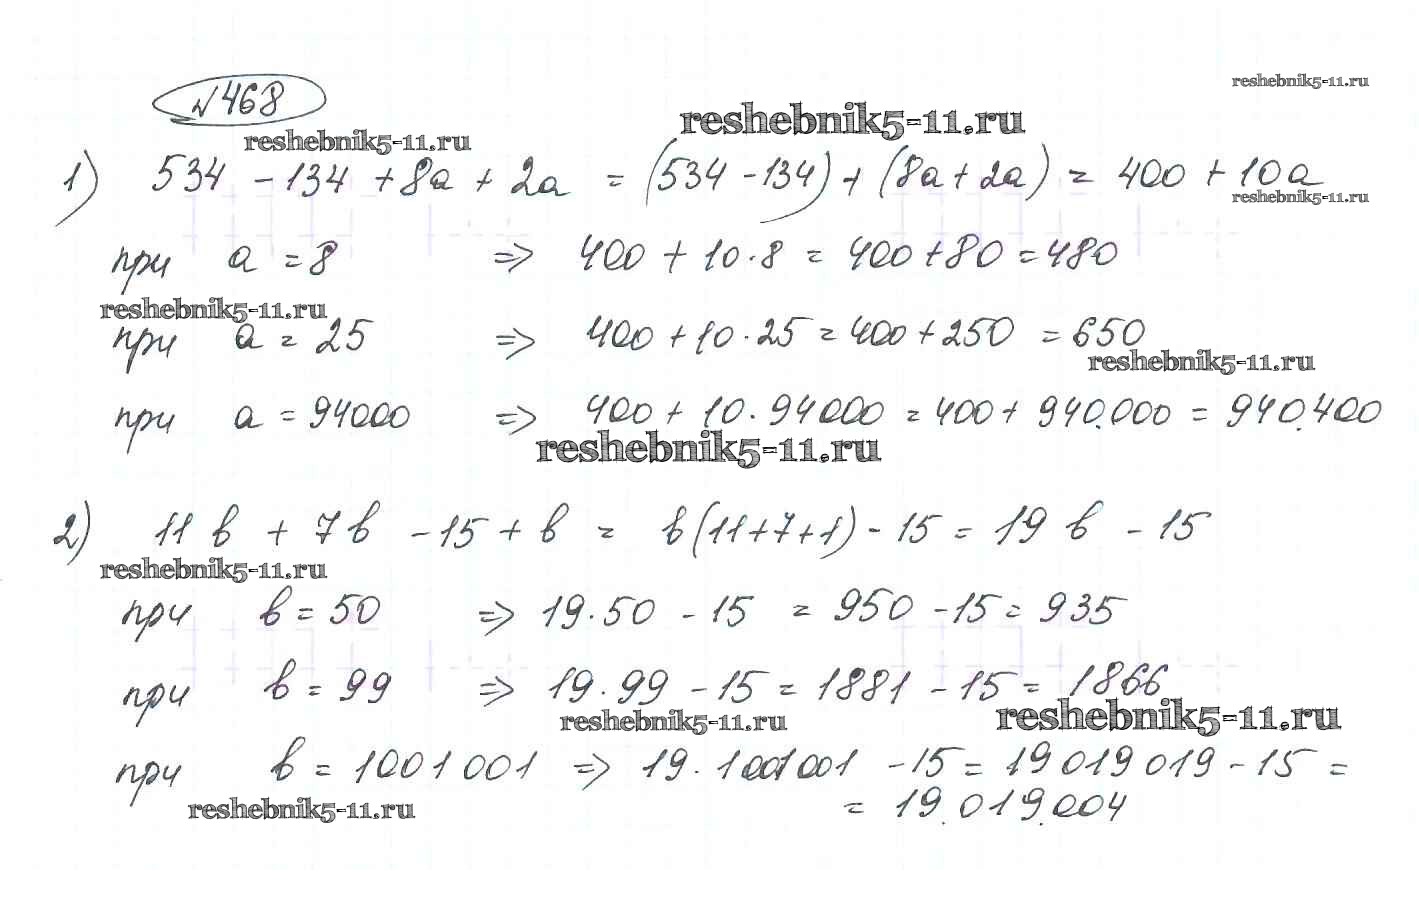 reshebnik5-11.ru
№468
reshebnik5-11.ru
reshebnik5-11.ru
1) 534 - 134 + 8a + 2a = (534 - 134) + (8a + 2a) = 400 + 10a
reshebnik5-11.ru
при a = 8 => 400 + 10·8 = 400 + 80 = 480
reshebnik5-11.ru
при a = 25 => 400 + 10·25 = 400 + 250 = 650
reshebnik5-11.ru
при a = 94000 => 400 + 10·94000 = 400 + 940.000 = 940.400
reshebnik5-11.ru
2) 11 в + 7 в - 15 + в = в(11+7+1) - 15 = 19 в - 15
reshebnik5-11.ru
при в = 50 => 19·50 - 15 = 950 - 15 = 935
при в = 99 => 19·99 - 15 = 1881 - 15 = 1866
reshebnik5-11.ru
reshebnik5-11.ru
при в = 1001001 => 19·1001001 - 15 = 19019019 - 15 =
= 19.019.004
reshebnik5-11.ru